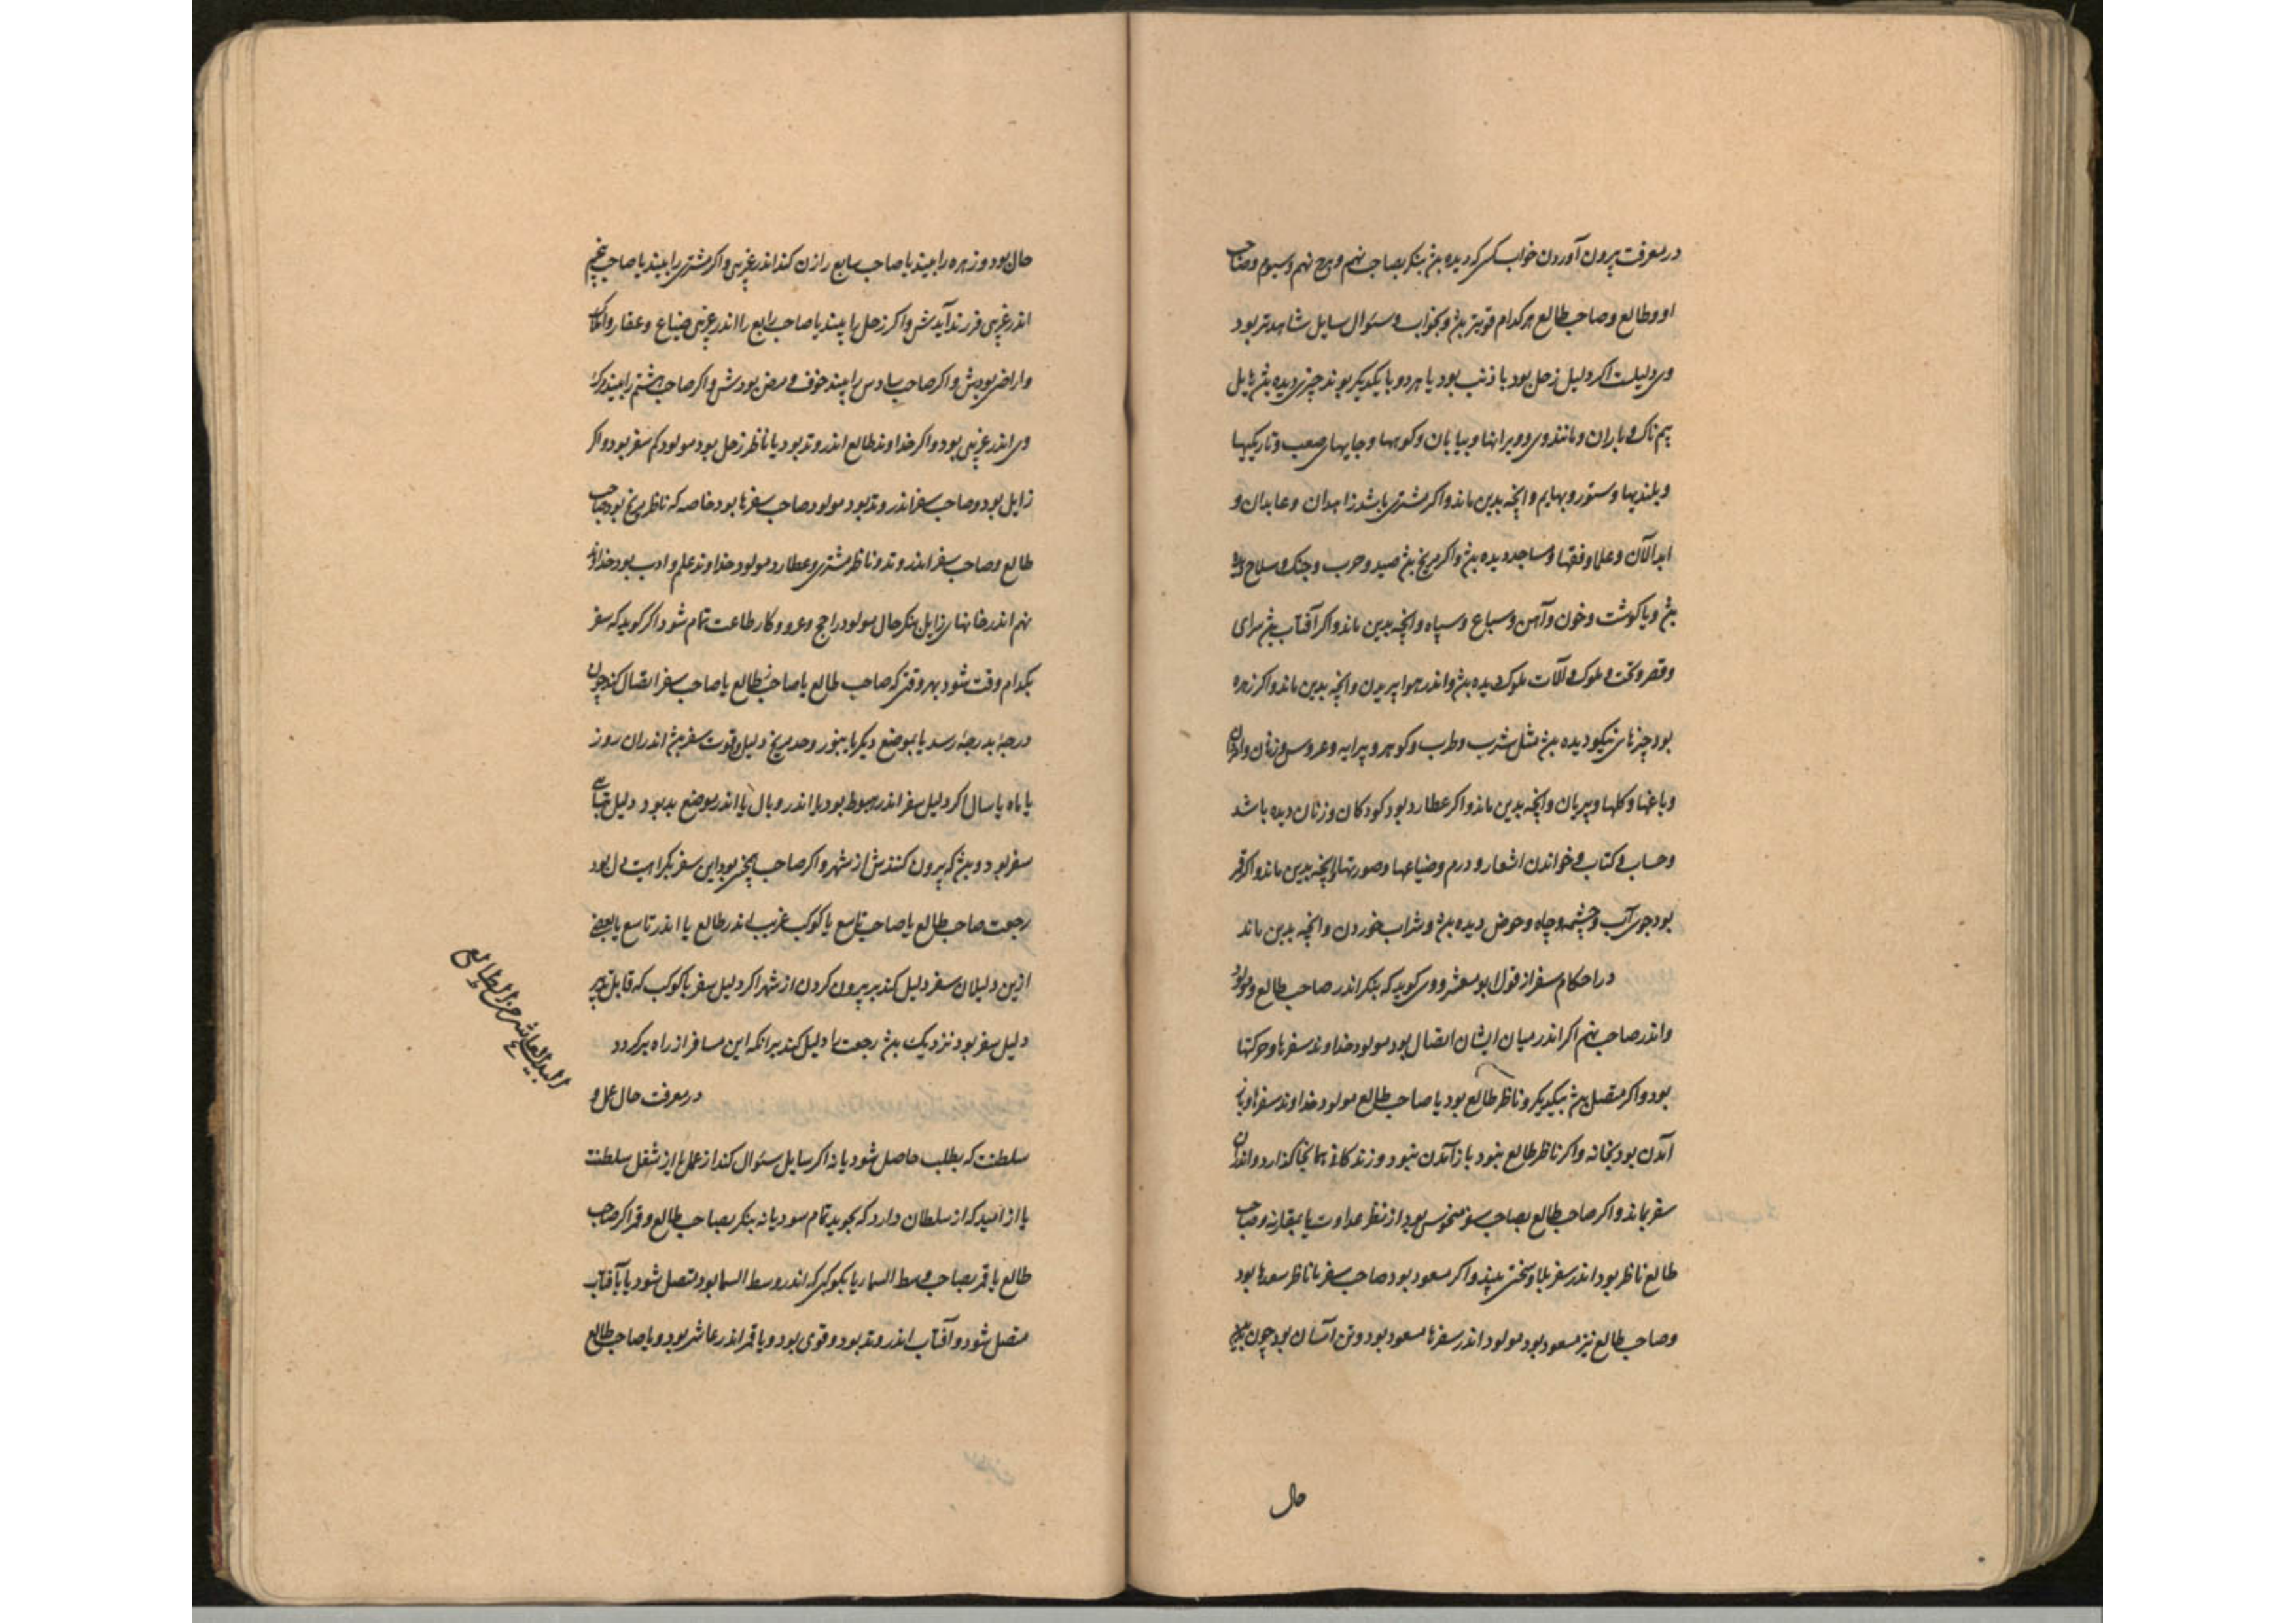 در معرفت بیرون آوردن خواب کسی که دیده بود بنکر بصاحب نهم و برج نهم و سیوم و صاحب
او و طالع و صاحب طالع هر کدام قویتر بود و بخواب و سئوال سایل شاهدتر بود
وی دلیلست اکر دلیل زحل بود یا ذنب بود یا هر دو با یکدیکر بوند چیزی دیده بود هایل
بیم ناک و باران و مانند وی و ویرانها و بیابان و کوهها و جایهای صعب و تاریکیها
و بلندیها و ستور و بهایم و آنچه بدین ماند و اکر مشتری باشد زاهدان و عابدان و
ابدالان و علما و فقها و مساجد دیده بود و اکر مریخ بود صید و حرب و جنک و سلاح دیده
بود و یا کوشت و خون و آهن و سباع و سپاه و آنچه بدین ماند و اکر آفتاب بود سرای
و قصر و تخت و ملوک و آلات ملوک دیده بود و اندر هوا پریدن و آنچه بدین ماند و اکر زهره
بود چیزهای نیکو دیده بود مثل شرب و طرب و کوهر و پیرایه و عروس و زنان
و باغها و کلها و پریان و آنچه بدین ماند و اکر عطارد بود کودکان و زنان دیده باشد
و حساب و کتاب و خواندن اشعار و درم و ضیاعها و صورتها و آنچه بدین ماند و اکر قمر
بود جوی آب و چشمه و چاه و حوض دیده بود و شراب خوردن و آنچه بدین ماند
در احکام سفر از قول ابو معشر و وی کوید که بنکر اندر صاحب طالع و مولود
و اندر صاحب نهم اکر اندر میان ایشان اتصال بود مولود خداوند سفرها و حرکتها
بود و اکر متصل بود بیکدیکر و ناظر طالع بود یا صاحب طالع مولود خداوند سفرها و باز
آمدن بود بخانه و اکر ناظر طالع نبود باز آمدن نبود و زندکانی همانجا کذارد و اندران
سفر بماند و اکر صاحب طالع بصاحب سفر منحوس بود از نظر عداوت یا بمقارنه و صاحب
طالع ناظر بود اندر سفر بلا و سختی بیند و اکر مسعود بود صاحب سفر یا ناظر سعدها بود
و صاحب طالع نیز مسعود بود مولود اندر سفرها مسعود بود و تن آسان بود چون
حال
حال بود و زهره را بیند یا صاحب سابع را زن کند اندر غریبی و اکر مشتری را بیند یا صاحب پنجم
اندر غریبی فرزند آیدش و اکر زحل را بیند یا صاحب رابع را اندر غریبی ضیاع و عقار و املاک
و اراضی بودش و اکر صاحب سادس را بیند خوف و مرض بودش و اکر صاحب هشتم را بیند مرک
وی اندر غریبی بود و اکر خداوند طالع اندر وتد بود یا ناظر زحل بود مولود کم سفر بود و اکر
زایل بود و صاحب سفر اندر وتد بود مولود صاحب سفرها بود خاصه که ناظر مریخ بود صاحب
طالع و صاحب سفر اندر وتد و ناظر مشتری و عطارد مولود خداوند علم و ادب بود خداوند
نهم اندر خانهای زایل بنکر حال مولود را حج و غزو و کار طاعت تمام شود اکر کوید که سفر
بکدام وقت شود بهر وقتی که صاحب طالع یا صاحب طالع یا صاحب سفر اتصال کند چون
درجه بدرجه رسد یا بموضع دیکر یا بنور وحد مریخ دلیل وقت سفر بود اندران روز
یا ماه یا سال اکر دلیل سفر اندر هبوط بود یا اندر وبال یا اندر موضع بد بود دلیل تباهی
سفر بود و بود که بیرون کنندش از شهر و اکر صاحب بود این سفر بکراهیت دل بود
رجعت صاحب طالع یا صاحب تاسع یا کوکب غریب اندر طالع یا اندر تاسع یا بعضی
ازین دلیلان سفر دلیل کند بر بیرون کردن از شهر اکر دلیل سفر یا کوکب که قابل تدبیر
دلیل سفر بود نزدیک بود رجعت را دلیل کند برانکه این مسافر از راه برکردد
در معرفت حال عمل و
سلطنت که بطلب حاصل شود یا نه اکر سایل سئوال کند از عمل یا از شغل سلطنت
یا از امید که از سلطان دارد که بجوید تمام شود یا نه بنکر بصاحب طالع و قمر اکر صاحب
طالع یا قمر بصاحب وسط السما یا بکوکبی که اندر وسط السما بود متصل شود یا بآفتاب
متصل شود و آفتاب اندر وتد بود و قوی بود و یا قمر اندر عاشر بود و یا صاحب طالع
البیت العاشر من الطالع